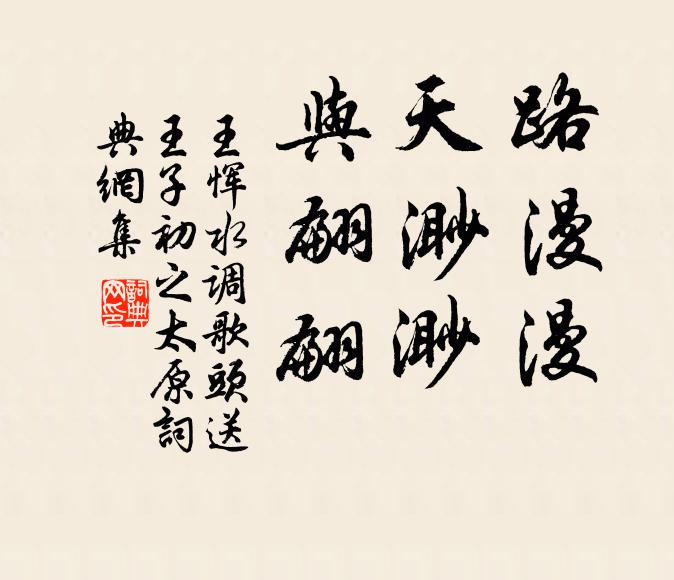 路漫漫
天渺渺
與翩翩
王惲水调歌頭送
王子初之太原詞
典網集
詞典网印